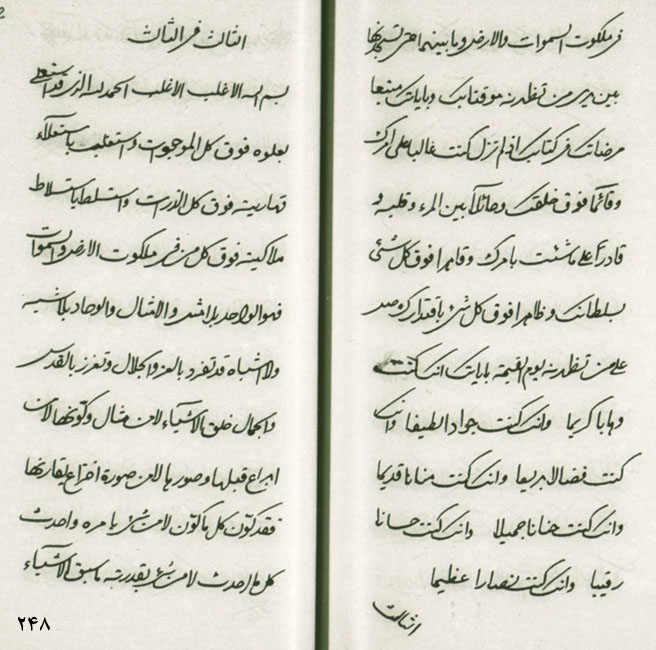 فی ملکوت السموات والارض وما بینهما حتی تشهدنها
بین یدی من تظهرنه موقنا بک وبایاتک متبعا
مرضاتک فی کتابک اذ لم تزل کنت غالبا علی امرک
وقائما فوق خلقک وحائلا بین المرء وقلبه و
قادرا علی ما شئت بامرک وقاهرا فوق کل شئ
بسلطانک وظاهرا فوق کل شئ باقتدارک وصل
علی من تظهرنه یوم القیمة بایاتک انک کنت
وهابا کریما وانک کنت جوادا لطیفا وانک
کنت فضالا بدیعا وانک کنت منانا قدیما
وانک کنت حنانا جمیلا وانک کنت حسانا
رقیبا وانک کنت نصارا عظیما
الثالث
الثالث فی الثالث
بسم الله الاغلب الاغلب الحمد لله الذی قد استعلی
بعلوه فوق کل الموجودات واستغلب باستعلاء
قهاریته فوق کل الذرات واستلط باستلاط
ملاکیته فوق کل من فی ملکوت الارض والسموات
فهو الواحد بلا مثل والامثال والوحاد بلا شبه
ولا اشباه قد تفرد بالعز والجلال وتعزز بالقدس
والجمال خلق الاشیاء لا من مثال وکونها لا من
ابداع قبلها وصورها لا من صورة اختراع تقارنها
فقد کون کل ما کون لا من شئ بامره واحدث
کل ما احدث لا من شئ بقدرته ما سبق الاشیاء
۲۴۸